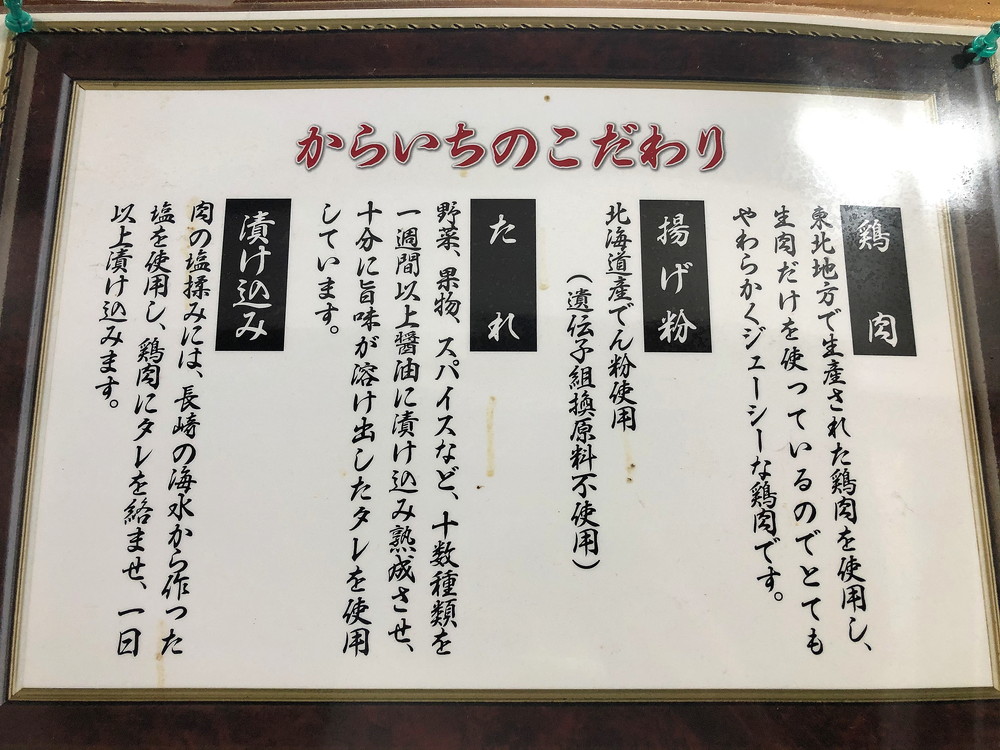 からいちのこだわり
鶏肉
東北地方で生産された鶏肉を使用し、
生肉だけを使っているのでとても
やわらかくジューシーな鶏肉です。
揚げ粉
北海道産でん粉使用
（遺伝子組換原料不使用）
たれ
野菜、果物、スパイスなど、十数種類を
一週間以上醤油に漬け込み熟成させ、
十分に旨味が溶け出したタレを使用
しています。
漬け込み
肉の塩揉みには、長崎の海水から作った
塩を使用し、鶏肉にタレを絡ませ、一日
以上漬け込みます。